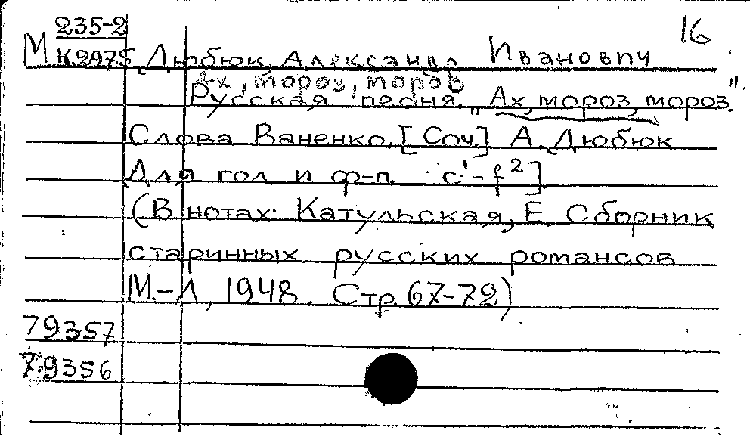 235-2
16
М К2975 Дюбюк, Александр Иванович
Ах, мороз, мороз
Русская песня. „Ах, мороз, мороз".
Слова Ваненко, [Соч.] А. Дюбюк
Для гол и ф-п. c¹-f²]
(В нотах: Катульская, Е. Сборник
старинных русских романсов
М-Л, 1948. Стр. 67-72)
79357
79356